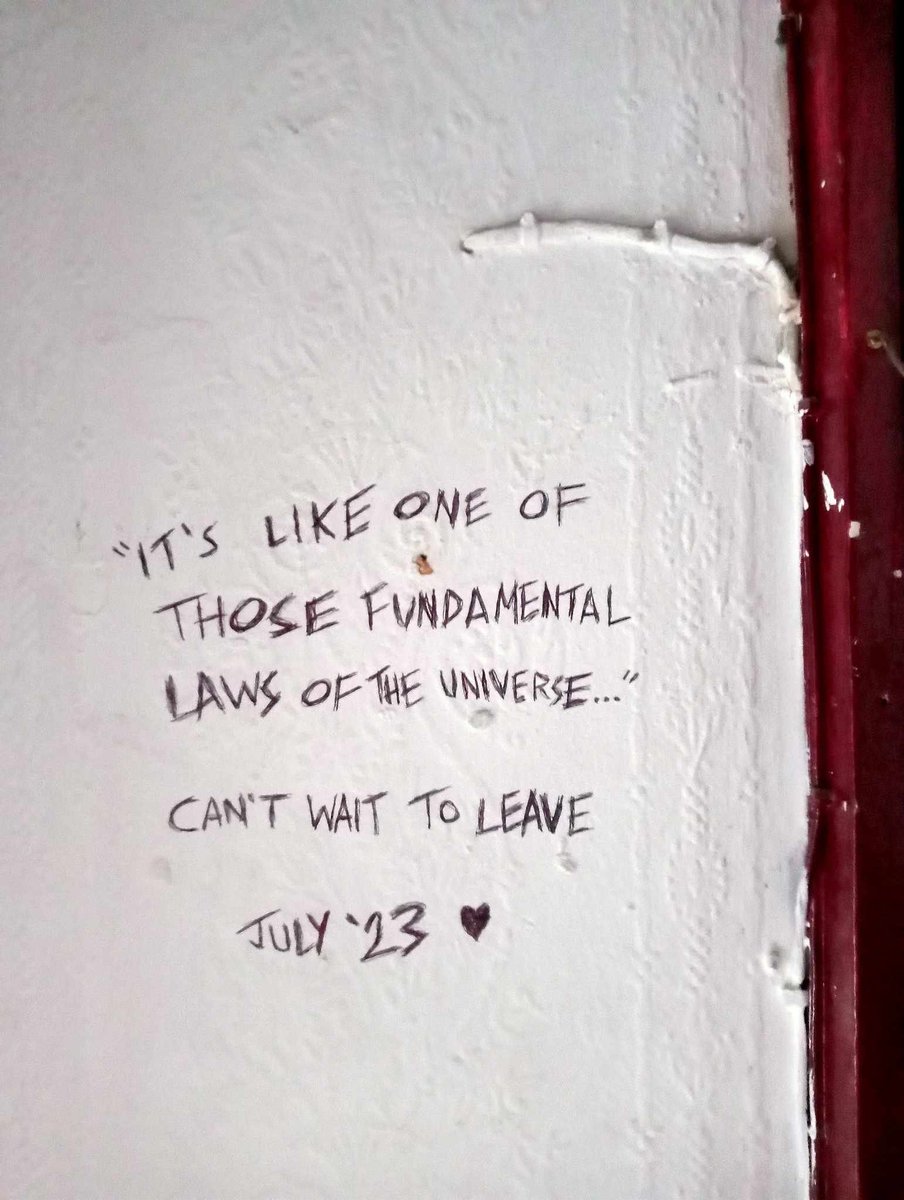 "IT'S LIKE ONE OF
THOSE FUNDAMENTAL
LAWS OF THE UNIVERSE..."
CAN'T WAIT TO LEAVE
JULY '23 ♥